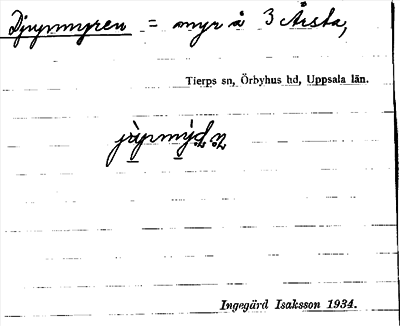 Djupmyren = myr å 3 Årsta,
Tierps sn, Örbyhus hd, Uppsala län.
Ingegärd Isaksson 1934.